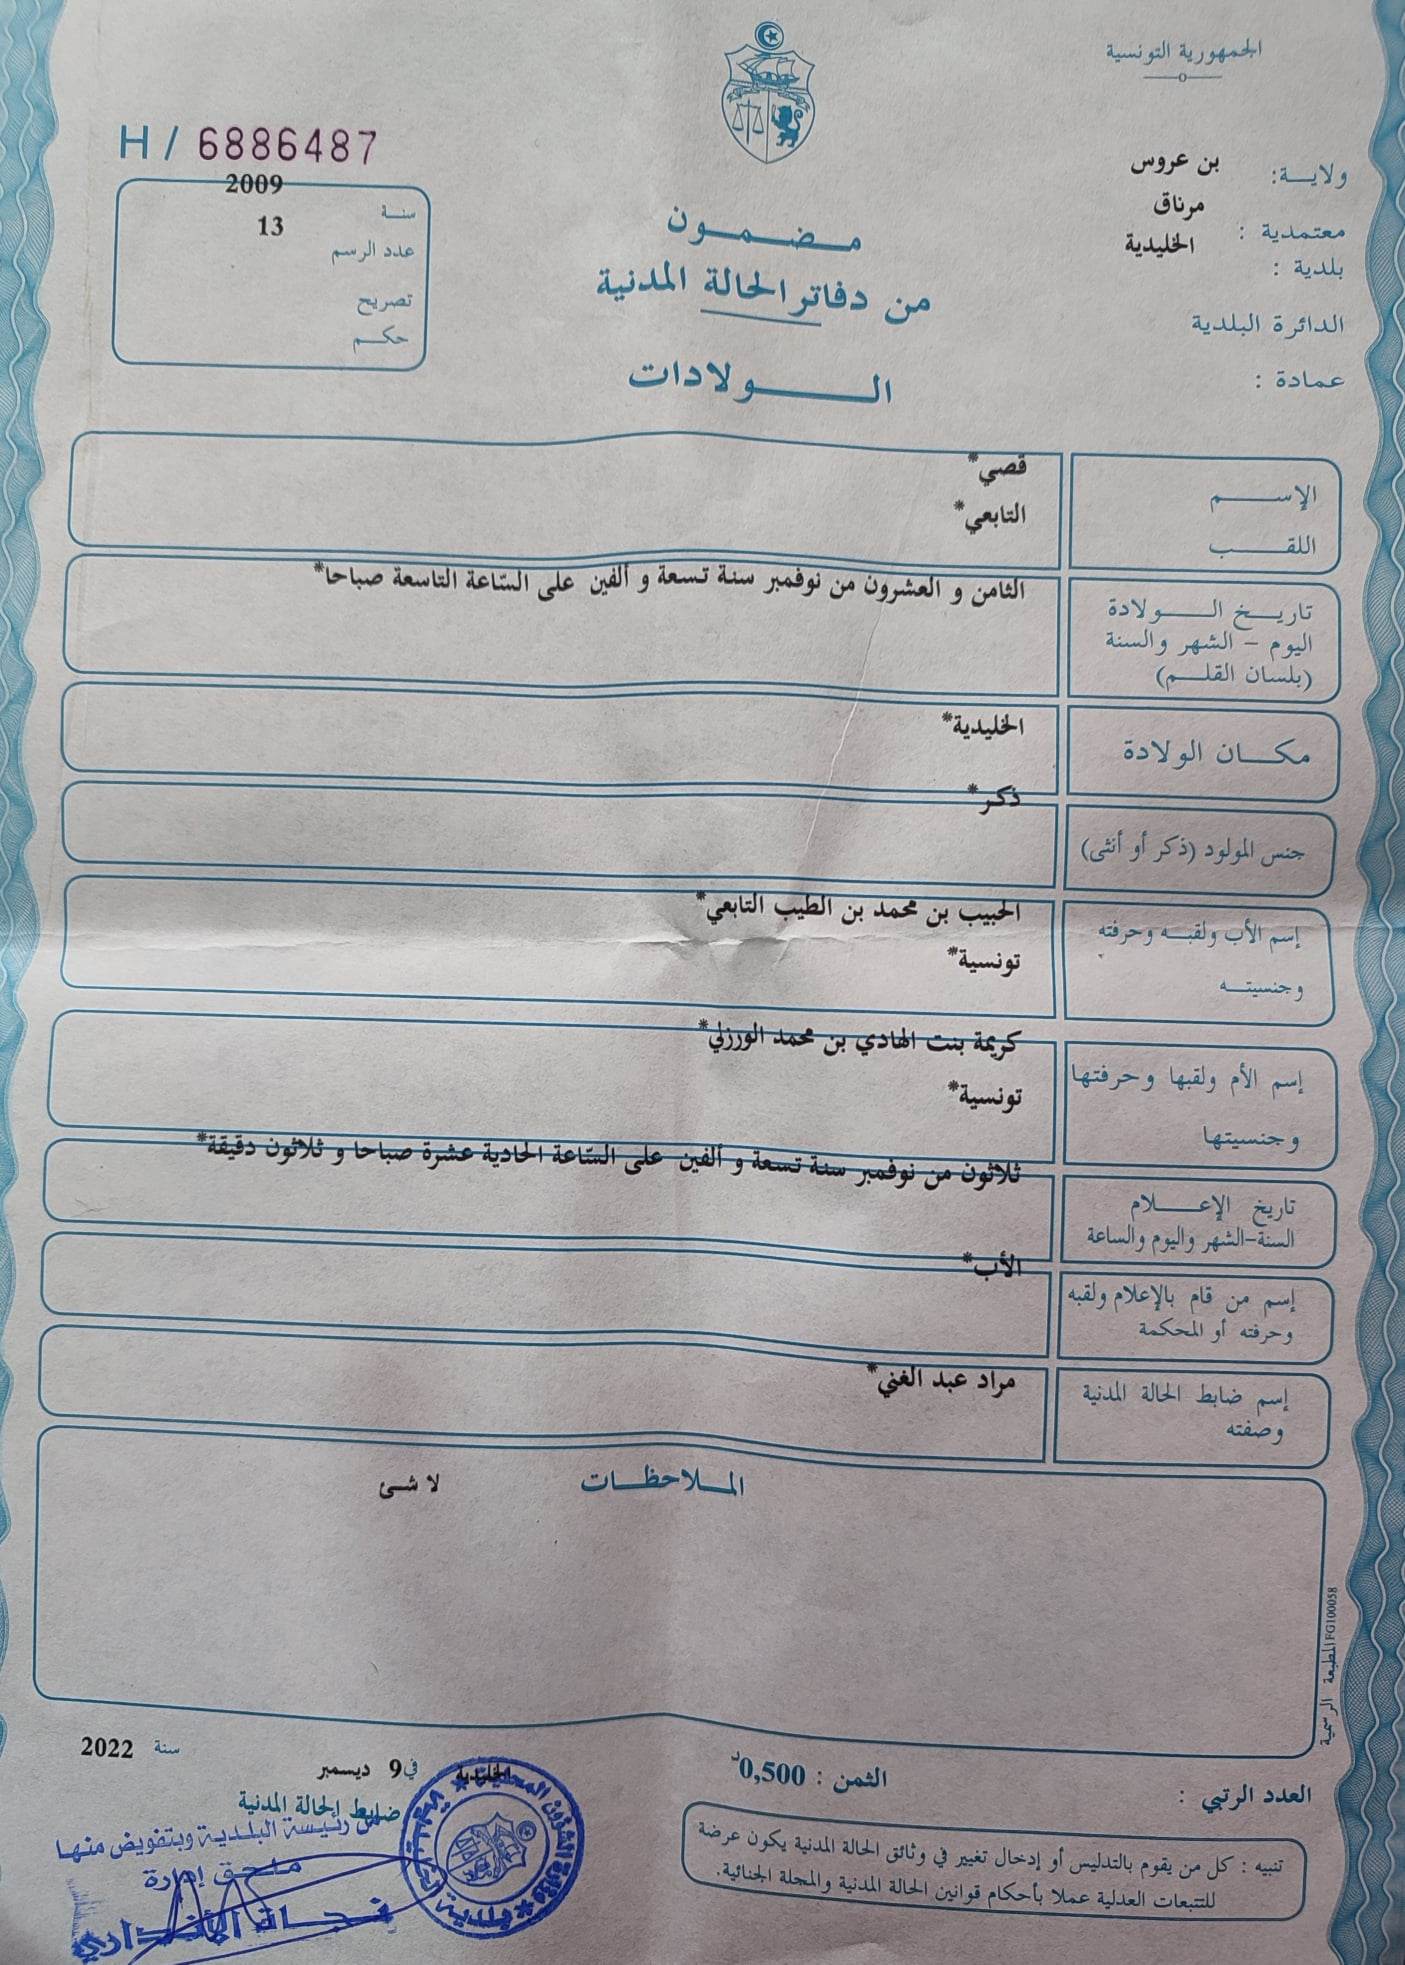 الجمهورية التونسية
ولاية: بن عروس
معتمدية : مرناق
بلدية : الخليدية
الدائرة البلدية
عمادة :
H / 6886487
سنة 2009
عدد الرسم 13
تصريح
حكم
مضمون
من دفاتر الحالة المدنية
الولادات
الإسم قصي*
اللقب التابعي*
تاريخ الولادة
اليوم - الشهر والسنة
(بلسان القلم)
الثامن و العشرون من نوفمبر سنة تسعة و ألفين على السّاعة التاسعة صباحا*
مكان الولادة الخليدية*
جنس المولود (ذكر أو أنثى) ذكر*
إسم الأب ولقبه وحرفته الحبيب بن محمد بن الطيب التابعي*
وجنسيته تونسية*
إسم الأم ولقبها وحرفتها كريمة بنت الهادي بن محمد الورزلي*
وجنسيتها تونسية*
تاريخ الإعلام
السنة-الشهر واليوم والساعة
ثلاثون من نوفمبر سنة تسعة و ألفين على السّاعة الحادية عشرة صباحا و ثلاثون دقيقة*
إسم من قام بالإعلام ولقبه
وحرفته أو المحكمة
الأب*
إسم ضابط الحالة المدنية
وصفته
مراد عبد الغني*
الملاحظات لا شئ
المطبعة الرسمية FG100058
العدد الرتبي :
الثمن : 0,500د
تنبيه : كل من يقوم بالتدليس أو إدخال تغيير في وثائق الحالة المدنية يكون عرضة
للتتبعات العدلية عملا بأحكام قوانين الحالة المدنية والمجلة الجنائية.
الخليدية في 9 ديسمبر سنة 2022
ضابط الحالة المدنية
عن رئيسة البلدية وبتفويض منها
ملحق إدارة